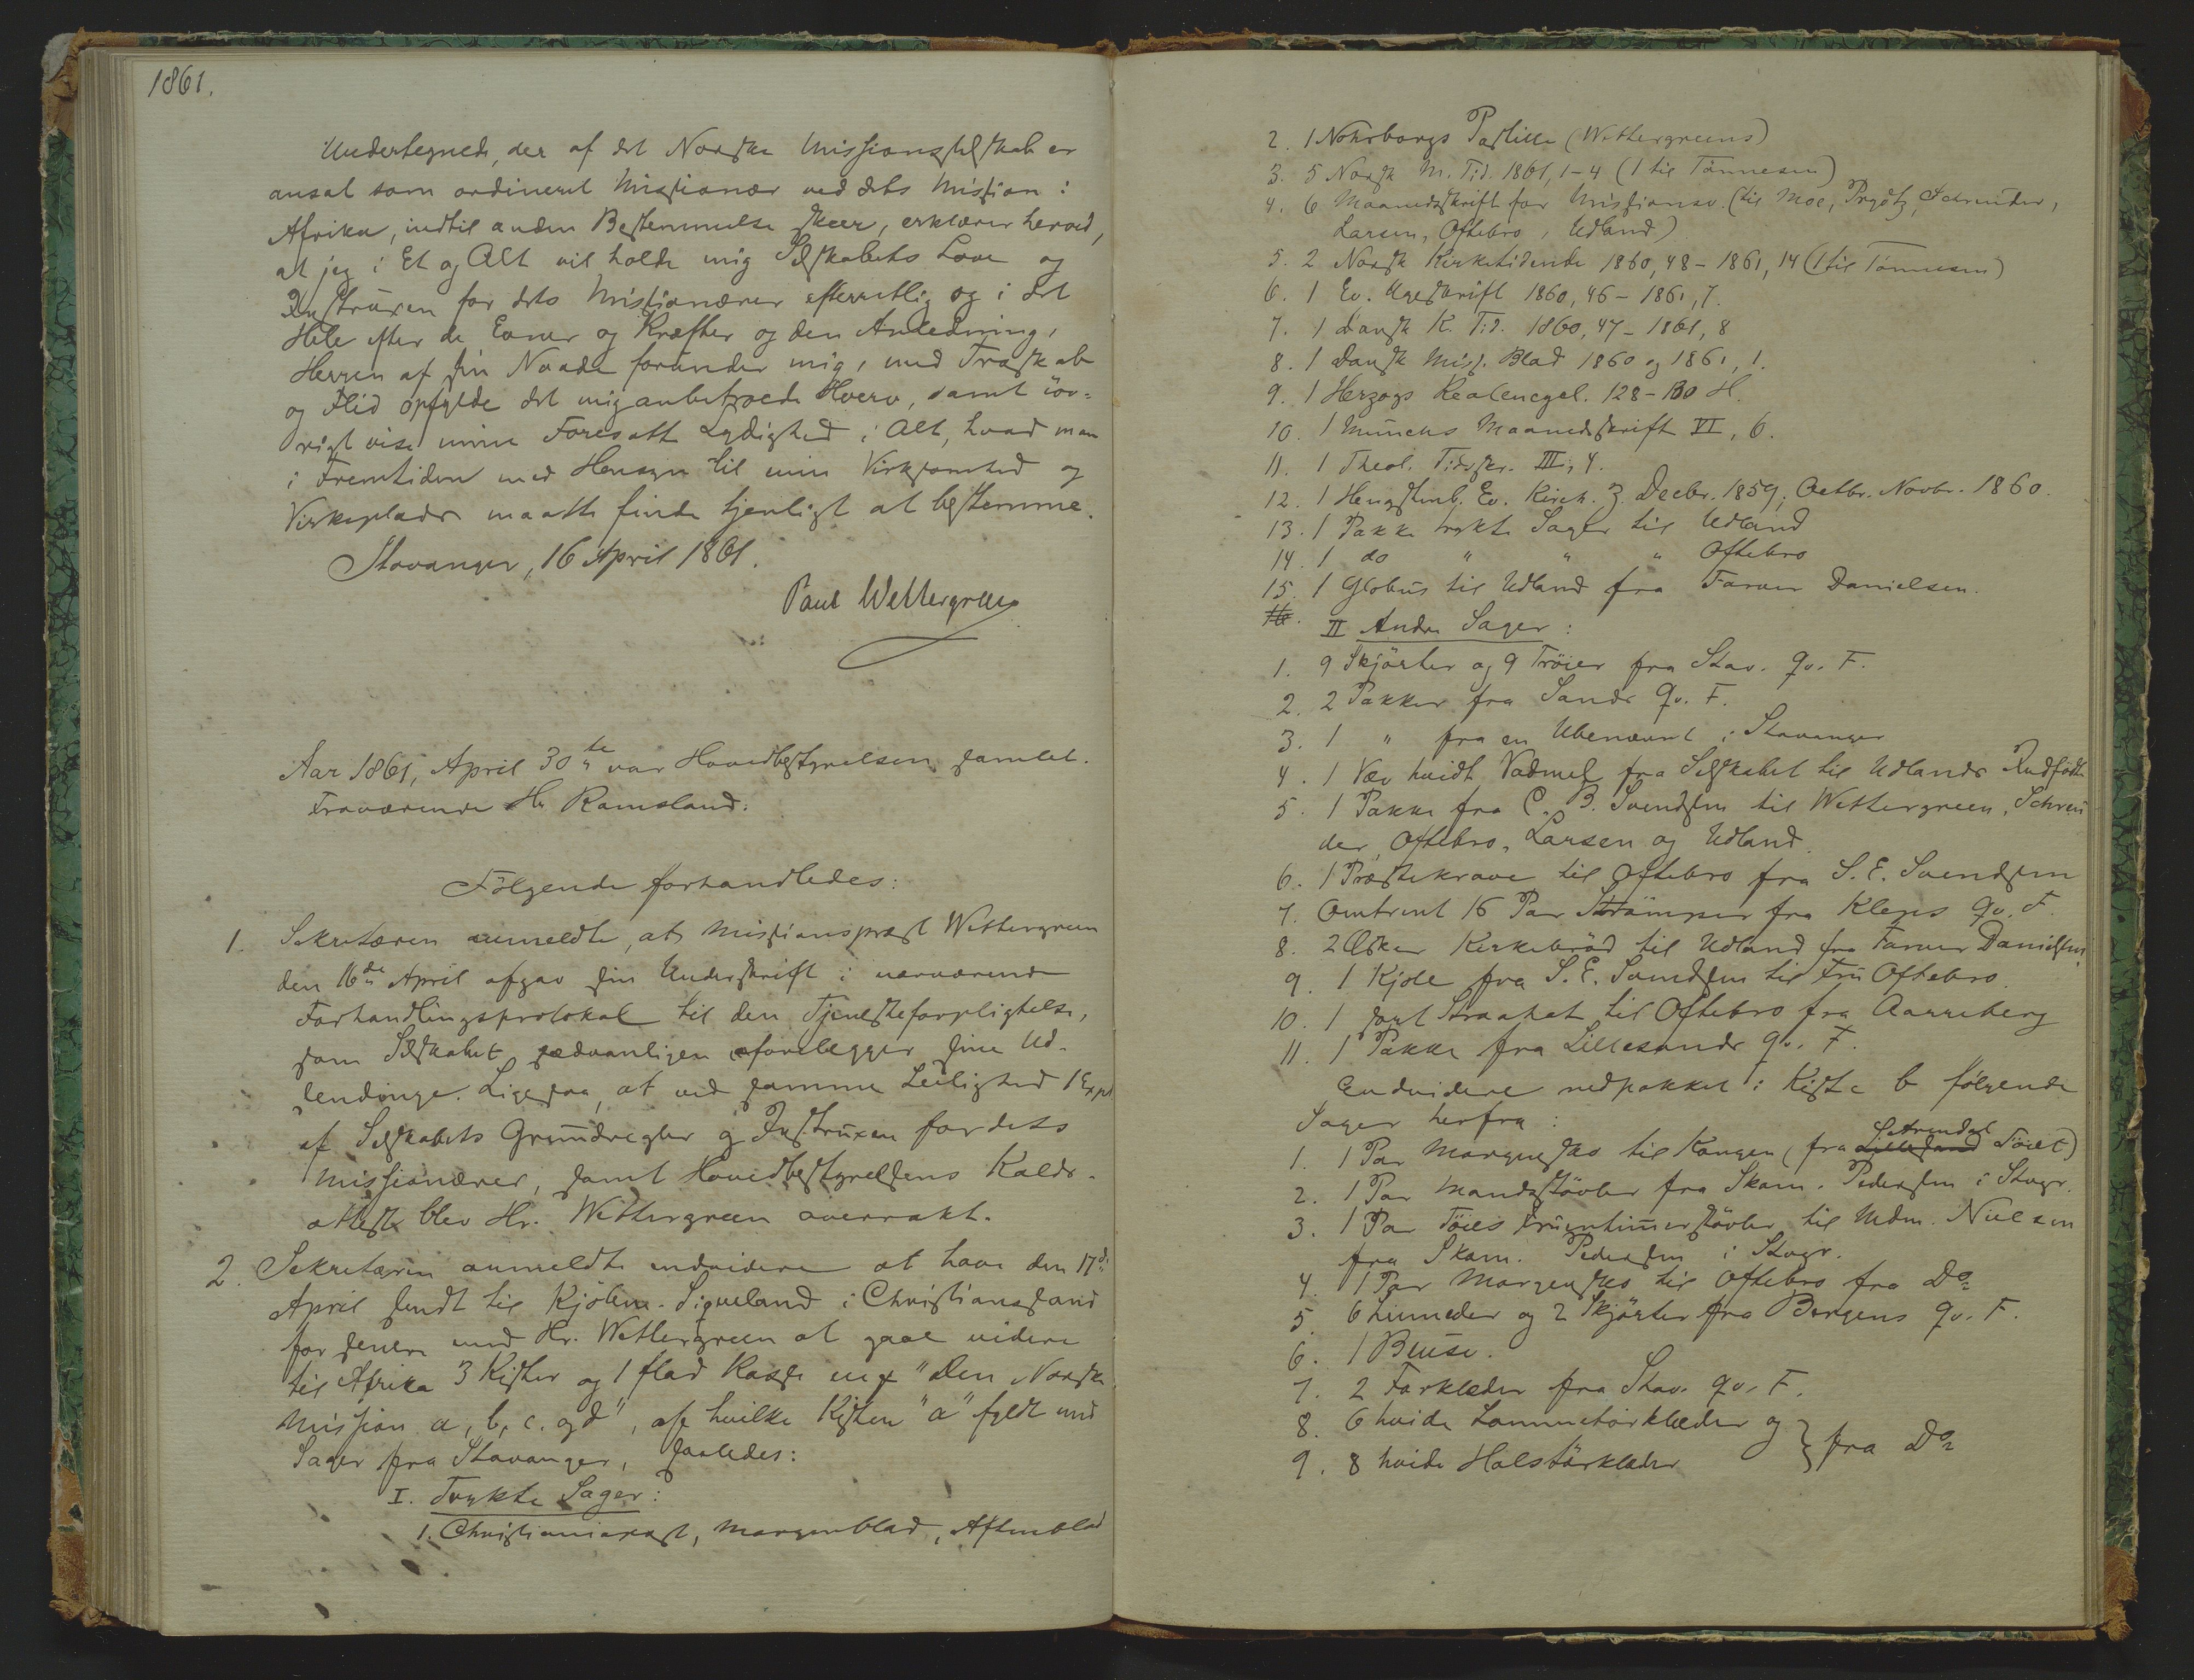 1861.
Undertegnede, der af det Norske Missionsselskab er
ansat som ordineret Missionær ved dets Mission i
Afrika, indtil anden Bestemmelse skeer, erklærer herved,
at jeg i Et og Alt vil holde mig Selskabets Love og
Instruxen for dets Missionærer efterretlig og i det
Hele efter de Evner og Kræfter og den Anledning,
Herren af sin Naade forunder mig, med Troskab
og Flid opfylde det mig anbetroede Hverv, samt iøv-
rigt vise mine Foresatte Lydighed i Alt, hvad man
i Fremtiden med Hensyn til min Virksomhed og
Virkeplads maatte finde tjenligt at bestemme.
Stavanger, 16 April 1861.
Paul Wettergreen
Aar 1861, April 30te var Hovedbestyrelsen samlet.
Fraværende Hr Ramsland.
Følgende forhandledes:
1. Sekretæren anmeldte, at Missionsprest Wettergreen
den 16de April afgav sin Underskrift i nærværende
Forhandlingsprotokol til den Tjenesteforpligtelse,
som Selskabet sædvanligen forelægger sine Ud-
sendinge. Ligesaa, at ved samme Leilighed 1 Expl
af Selskabets Grundregler og Instruxen for dets
Missionærer, samt Hovedbestyrelsens Kalds-
attest blev Hr. Wettergreen overrakt.
2. Sekretæren anmeldte endvidere at have den 17de
April sendt til Kjøbm. Siqveland i Christianssand
for senere med Hr. Wettergreen at gaae videre
til Afrika 3 Kister og 1 flad Kasse mrk "Den Norske
Mission a, b, c. og d", af hvilke Kisten "a" fyldt med
Sager fra Stavanger, saaledes:
I. Trykte Sager:
1. Christianiapost, Morgenblad, Aftenblad
2. 1 Nohrborgs Postille (Wettergreens)
3. 5 Norsk M. Tid. 1861, 1-4 (1 til Tønnesen)
4. 6 Maanedsskrift for Missionsv. (til Moe, Prydtz, Schreuder,
Larsen, Oftebro, Udland)
5. 2 Norsk Kirketidende 1860, 48 - 1861, 14 (1 til Tønnesen)
6. 1 Ev. Ugeskrift 1860, 46 - 1861, 7.
7. 1 Dansk K. Tid. 1860, 47 - 1861, 8
8. 1 Dansk Miss. Blad 1860 og 1861, 1.
9. 1 Herzogs Realencycl. 128-130 H.
10. 1 Munchs Maanedskrift VI, 6.
11. 1 Theol. Tidsskr. III, 4.
12. 1 Hengstenb. Ev. Kirch. Z Decbr. 1859, Octbr. Novbr. 1860.
13. 1 Pakke trykte Sager til Udland
14. 1 do " " " Oftebro
15. 1 Globus til Udland fra Farver Danielsen.
16.
II Andre Sager:
1. 9 Skjørter og 9 Trøier fra Stav. Qv. F.
2. 2 Pakker fra Sands Qv. F.
3. 1 " fra en Ubenævnt i Stavanger
4. 1 Væv hvidt Vadmel fra Selskabet til Udlands Indfødte
5. 1 Pakke fra C. B. Svendsen til Wettergreen, Schreu
der, Oftebro, Larsen og Udland.
6. 1 Præstekrave til Oftebro fra S. E. Svendsen
7. Omtrent 16 Par Strømper fra Kleps Qv. F.
8. 2 Æsker Kirkebrød til Udland fra Farver Danielsen
9. 1 Kjole fra S. E. Svendsen til Fru Oftebro.
10. 1 sort Straahat til Oftebro fra Aarreberg
11. 1 Pakke fra Lillesands Qv. F.
Endvidere nedpakket i Kiste b følgende
Sager herfra:
1. 1 Par Morgensko til Kongen (fra Lillesand Arendal Tøiet)
2. 1 Par Mandsstøvler fra Skom. Pedersen i Stvgr.
3. 1 Par Tøies Fruentimerstøvler til Mdm. Nielsen
fra Skom. Pedersen i Stvgr.
4. 1 Par Morgensko til Oftebro fra Do
5. 6 Linneder og 2 Skjørter fra Bergens Qv. F.
6. 1 Bluse.
7. 2 Forklæder fra Stav. Qv. F.
8. 6 hvide Lommetørklæder og
9. 8 hvide Halstørklæder } fra Do